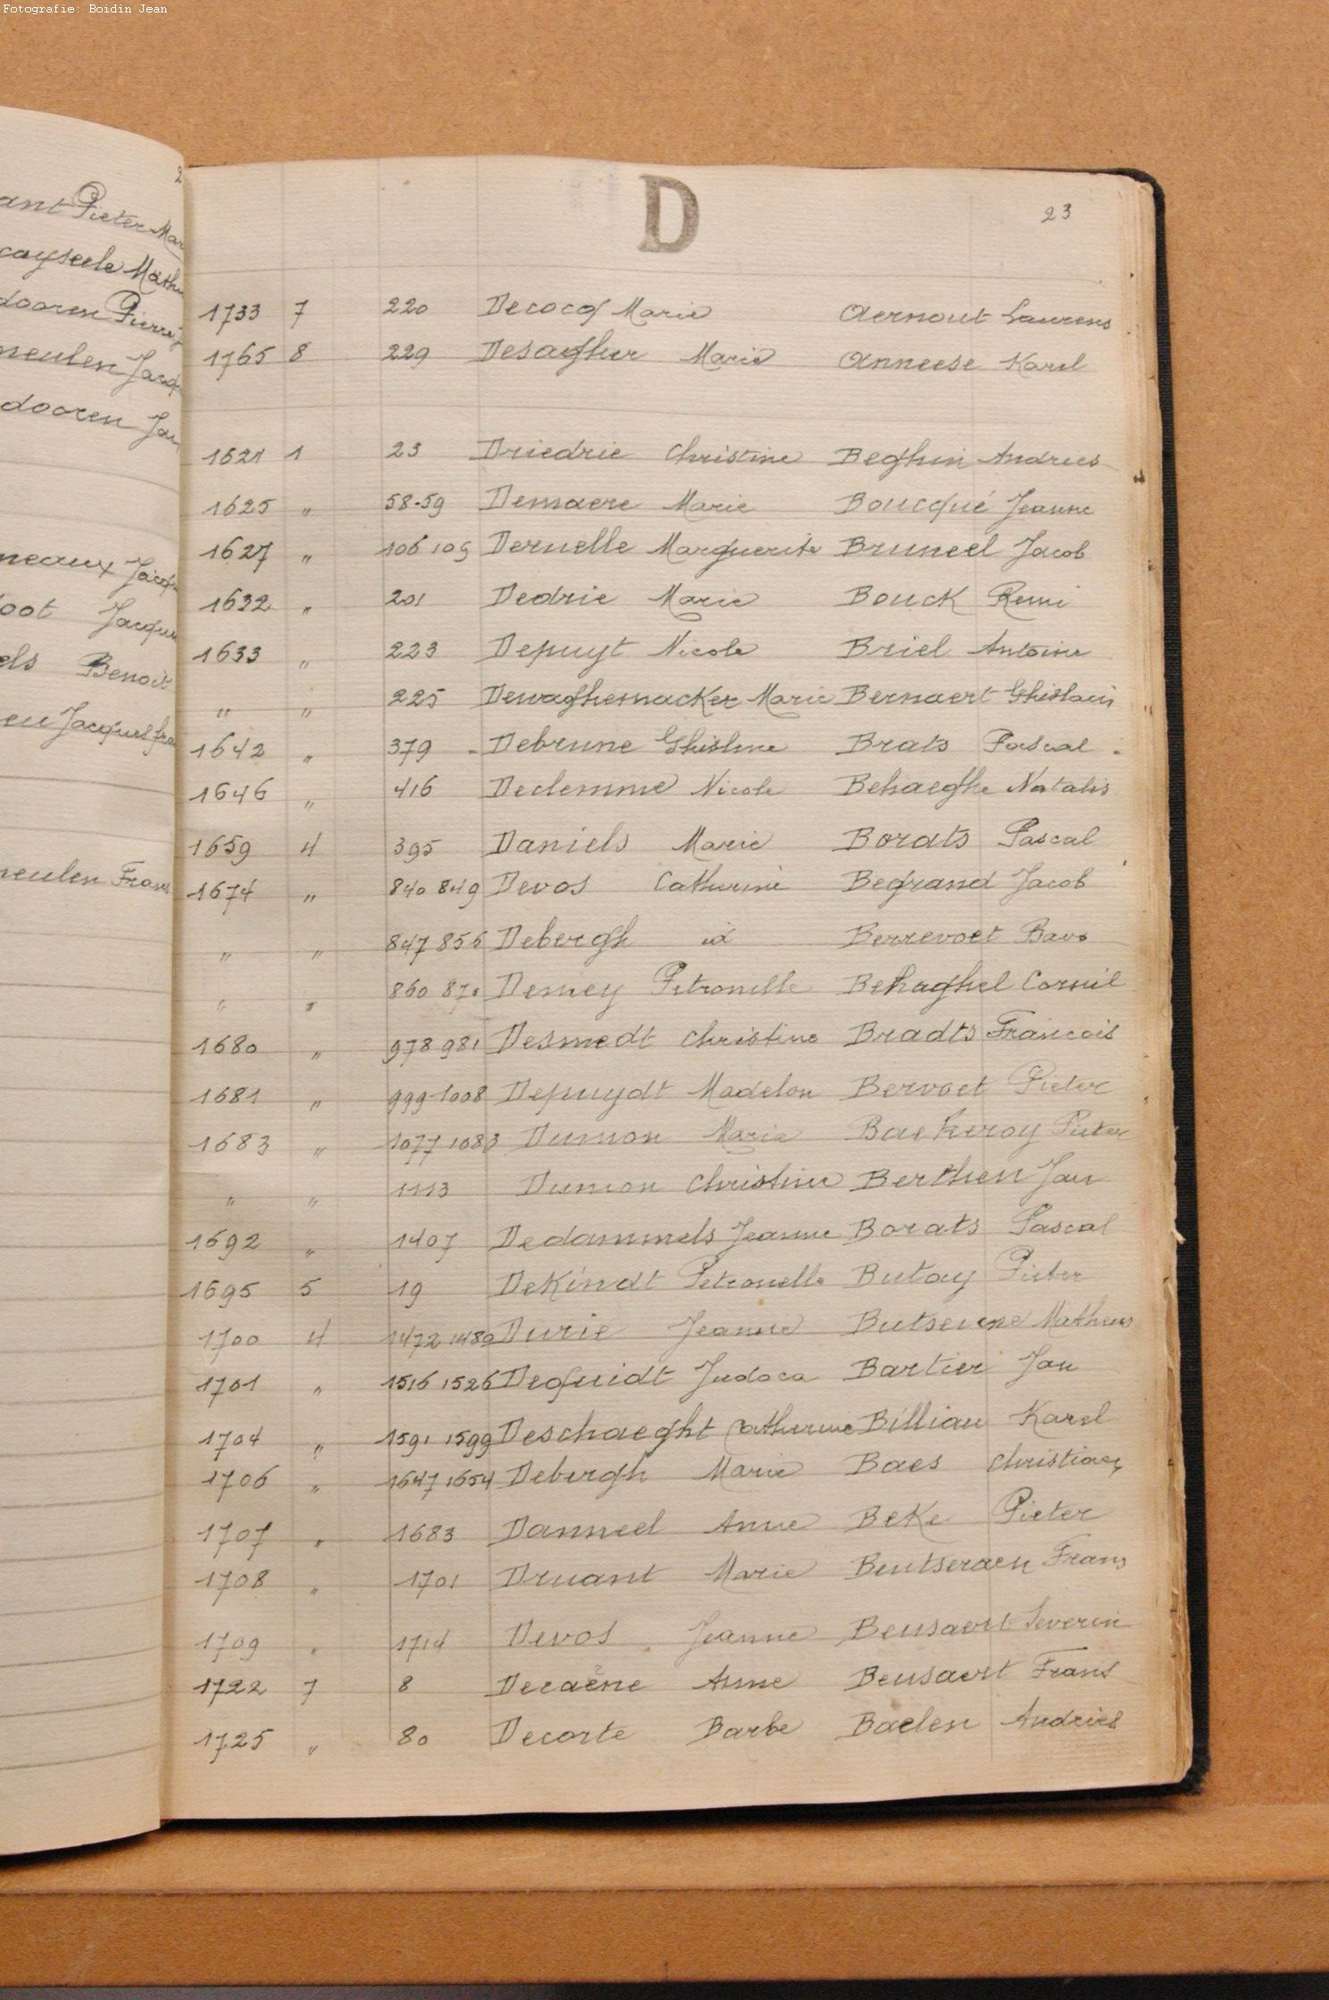 Fotografie: Boidin Jean
D
23
1733 7 220 Decocq Marie Aernout Laurens
1765 8 229 Desagher Marie Anneese Karel
1621 1 23 Driedrie Christine Beghin Andries
1625 " 58-59 Demaere Marie Boucqué Jeanne
1627 " 106 109 Deruelle Marguerite Bruneel Jacob
1632 " 201 Dedrie Marie Bouck Remi
1633 " 223 Depuyt Nicole Briel Antoine
" " 225 Dewaghemacker Marie Bernaert Ghislain
1642 " 379 - Debrune Ghisline Brats Pascal -
1646 " 416 Declemme Nicole Behaeghe Natalis
1659 4 395 Daniels Marie Borats Pascal
1674 " 840 849 Devos Catherine Begrand Jacob
" " 847 856 Debergh id Berrevoet Bavo
" " 860 870 Demey Petronille Behaghel Cornil
1680 " 978 981 Desmedt Christine Bradts Francois
1681 " 999-1008 Depuydt Madelon Bervoet Pieter
1683 " 1077 1083 Dumon Marie Baekeroy Pieter
" " 1113 Dumon Christine Berthen Jan
1692 " 1407 Dedammels Jeanne Borats Pascal
1695 5 19 DeKindt Petronelle Butay Pieter
1700 4 1472 1480 Durie Jeanne Matheus
1701 " 1516 1526 Dequidt Judoca Bartier Jan
1704 " 1591 1599 Deschaeght Catherine Billiau Karel
1706 " 1647 1654 Debergh Marie Baes Christiaen
1707 " 1683 Danneel Anne BeKe Pieter
1708 " 1701 Druant Marie Beutseraen Frans
1709 " 1714 Devos Jeanne Beusaert Severin
1722 7 8 Decaëne Anne Beusaert Frans
1725 " 80 Decorte Barbe Baelen Andries